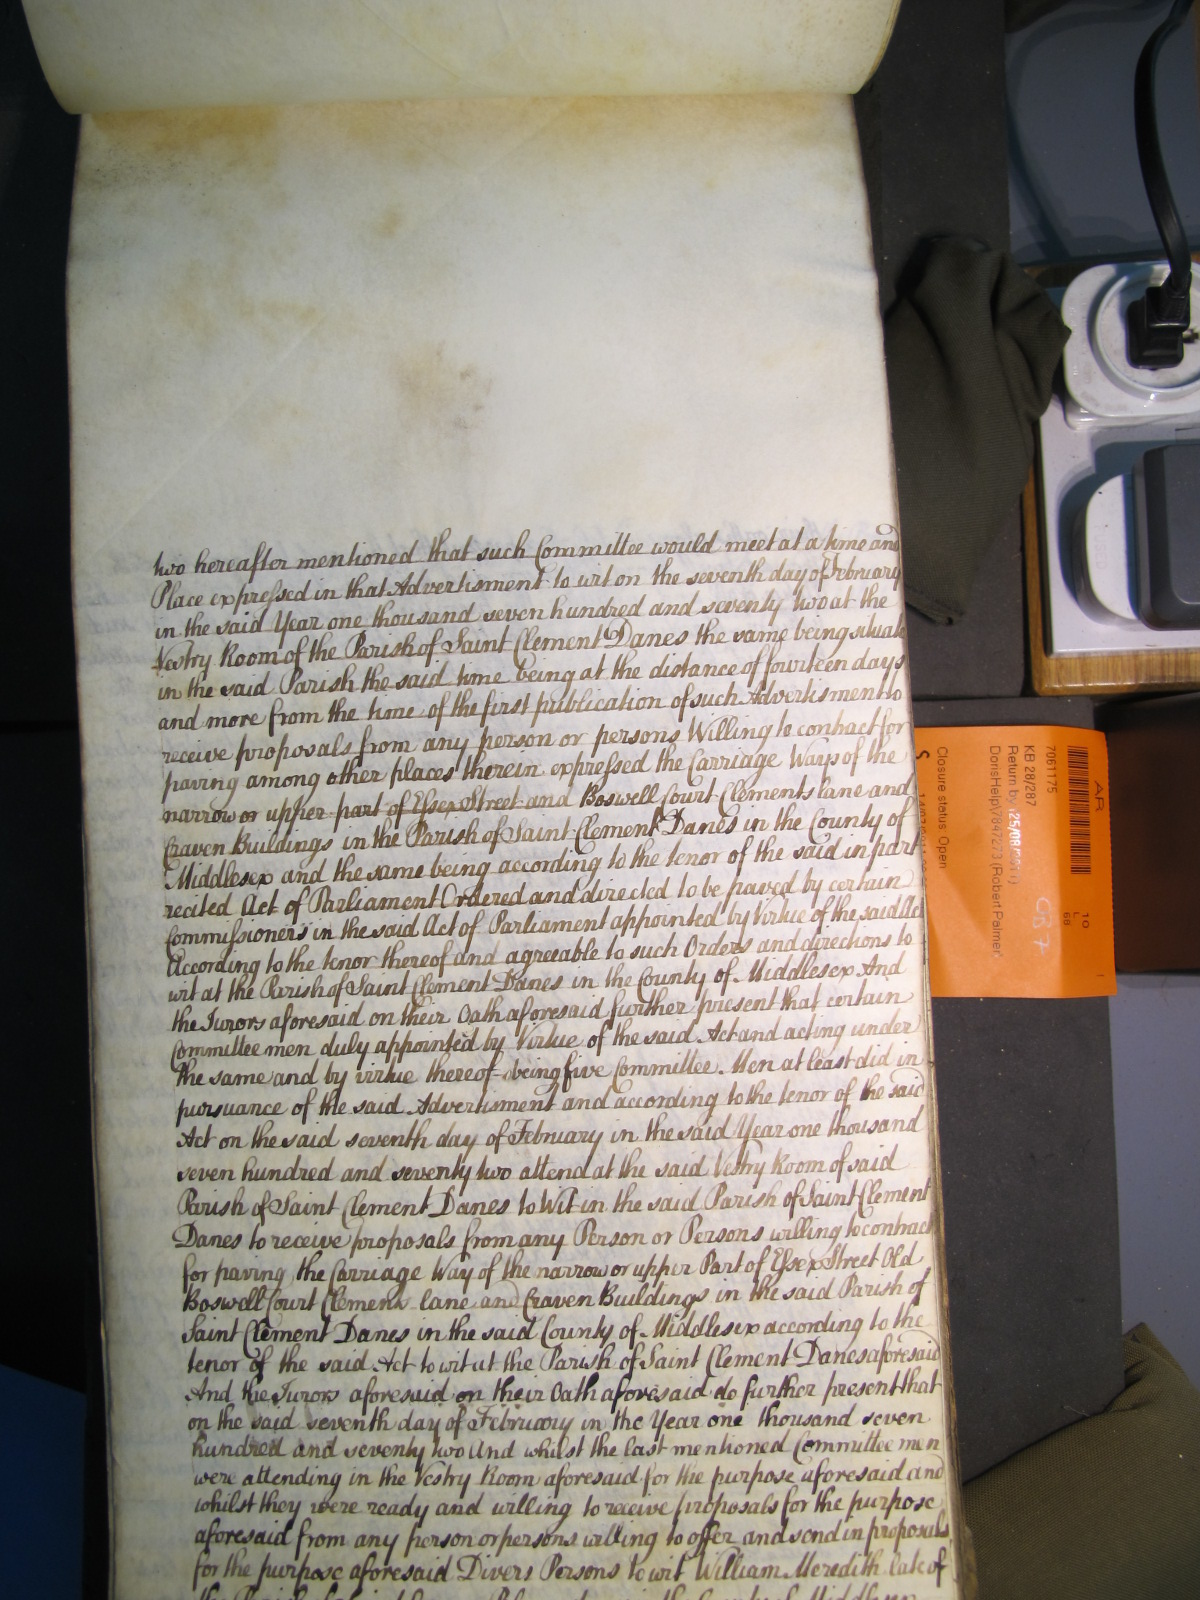 two hereafter mentioned that such Committee would meet at a time and
Place expressed in that Advertisment to wit on the seventh day of February
in the said Year one thousand seven hundred and seventy two at the
Vestry Room of the Parish of Saint Clement Danes the same being situate
in the said Parish the said time being at the distance of fourteen days
and more from the time of the first publication of such Advertisment to
receive proposals from any person or persons Willing to contract for
paving among other places therein expressed the Carriage Ways of the
narrow or upper part of Essex Street and Boswell Court Clements lane and
Craven Buildings in the Parish of Saint Clement Danes in the County of
Middlesex and the same being according to the tenor of the said in part
recited Act of Parliament Ordered and directed to be paved by certain
Commissioners in the said Act of Parliament appointed by Virtue of the said Act
According to the tenor thereof and agreeable to such Orders and directions to
wit at the Parish of Saint Clement Danes in the County of Middlesex And
the Jurors aforesaid on their Oath aforesaid further present that certain
Committee men duly appointed by Virtue of the said Act and acting under
the same and by virtue thereof being five Committee Men at least did in
pursuance of the said Advertisment and according to the tenor of the said
Act on the said seventh day of February in the said Year one thousand
seven hundred and seventy two attend at the said Vestry Room of said
Parish of Saint Clement Danes to Wit in the said Parish of Saint Clement
Danes to receive proposals from any Person or Persons willing to contract
for paving the Carriage Way of the narrow or upper Part of Essex Street Old
Boswell Court Clements lane and Craven Buildings in the said Parish of
Saint Clement Danes in the said County of Middlesex according to the
tenor of the said Act to wit at the Parish of Saint Clement Danes aforesaid
And the Jurors aforesaid on their Oath aforesaid do further present that
on the said seventh day of February in the Year one thousand seven
hundred and seventy two And whilst the last mentioned Committee men
were attending in the Vestry Room aforesaid for the purpose aforesaid and
whilst they were ready and willing to receive proposals for the purpose
aforesaid from any person or persons willing to offer and send in proposals
for the purpose aforesaid Divers Persons to wit William Meredith late of
AR
7061175
KB 28/287
Return by 25/08/2011
DorisHelp\7847273 (Robert Palmer)
Closure status: Open
S
10
L
68